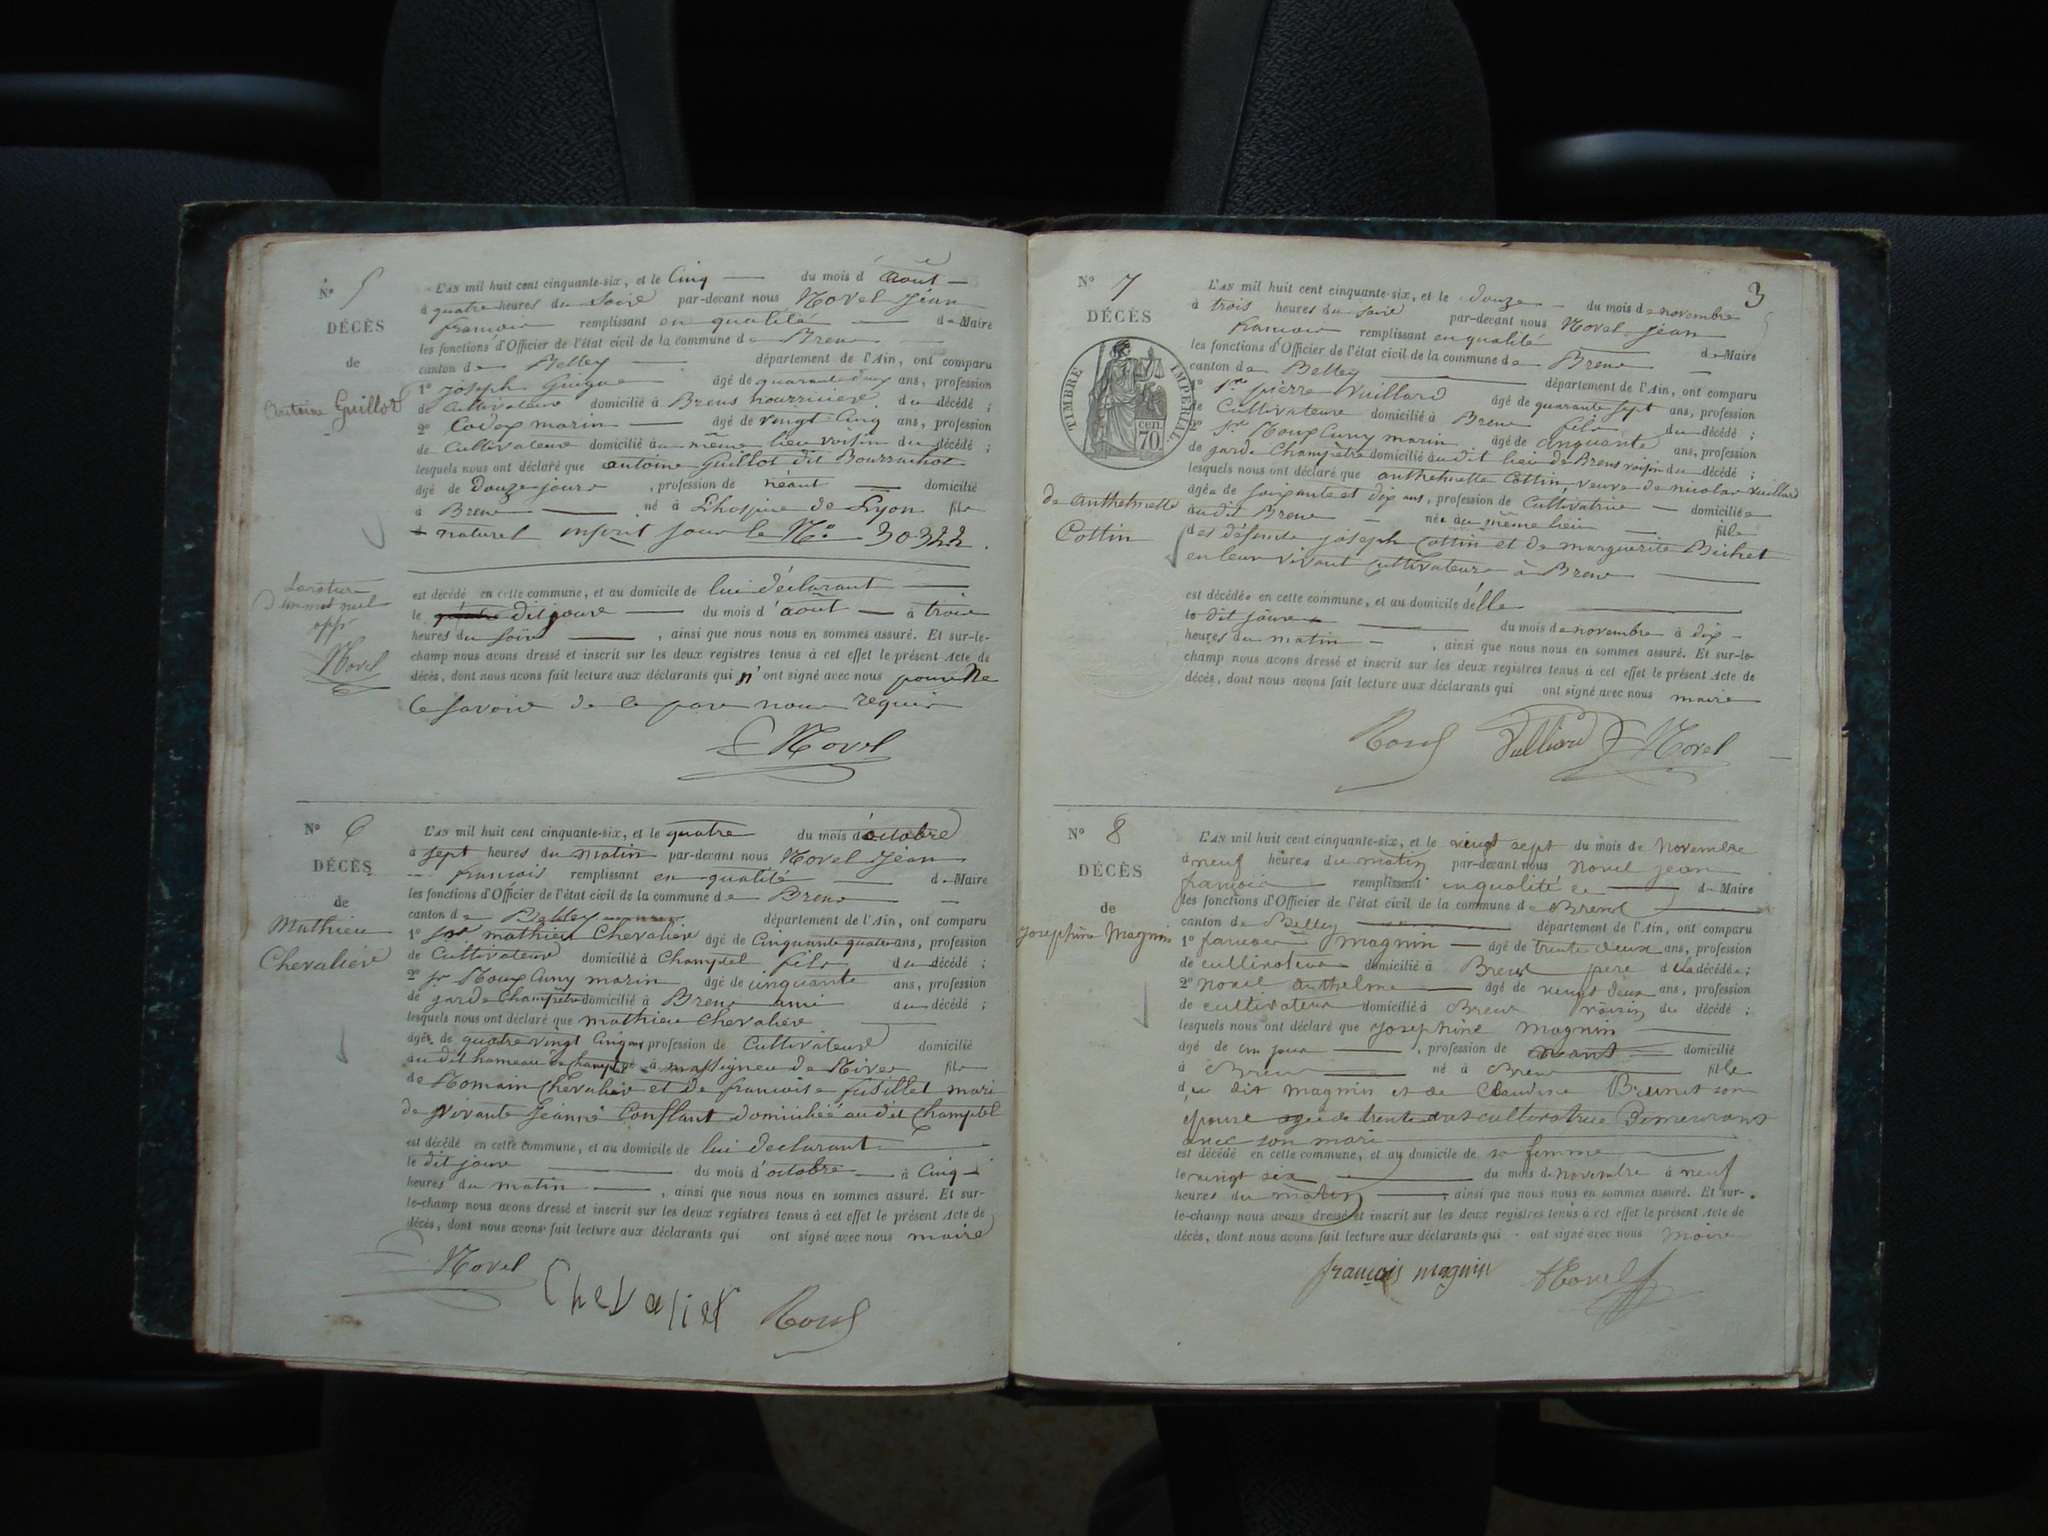 N° 5
DÉCÈS
de
Antoine Guillot
L'AN mil huit cent cinquante-six, et le Cinq du mois d'août
à quatre heures du Soire par-devant nous Novel Jean
francois remplissant en qualité de Maire
les fonctions d'Officier de l'état civil de la commune de Brens
canton de Belley département de l'Ain, ont comparu
1° Joseph Guigue âgé de quarante deux ans, profession
de Cultivateur domicilié à Brens nourricier du décédé ;
2° Codex marin âgé de vingt Cinq ans, profession
de Cultivateur domicilié au même lieu voisin du décédé ;
lesquels nous ont déclaré que antoine Guillot dit Bourruchot
âgé de Douze jours , profession de néant domicilié
à Brens né à L'hospice de Lyon fils
naturel inscrit sous le N° 30322.
est décédé en cette commune, et au domicile de lui déclarant
le dit jour du mois d'août à trois
heures du soire , ainsi que nous nous en sommes assuré. Et sur-le-
champ nous avons dressé et inscrit sur les deux registres tenus à cet effet le présent Acte de
décès, dont nous avons fait lecture aux déclarants qui n'ont signé avec nous pour Ne
le savoir de ce par nous requis
Novel
Novel
N° 6
DÉCÈS
de
Mathieu
Chevalier
L'AN mil huit cent cinquante-six, et le quatre du mois d'octobre
à sept heures du matin par-devant nous Novel Jean
francois remplissant en qualité de Maire
les fonctions d'Officier de l'état civil de la commune de Brens
canton de Belley département de l'Ain, ont comparu
1° Sr mathieu Chevalier âgé de Cinquante quatre ans, profession
de Cultivateur domicilié à Champtel fils du décédé ;
2° Sr Roux Cuny marin âgé de cinquante ans, profession
de garde Champêtre domicilié à Brens ami du décédé ;
lesquels nous ont déclaré que mathieu Chevalier
âgé de quatre vingt Cinq ans profession de Cultivateur domicilié
au dit hameau de Champtel né à massigneu de Rives fils
de Romain Chevalier et de francoise fusillet mari
de vivante Jeanne Conflant domiciliée au dit Champtel
est décédé en cette commune, et au domicile de lui declarant
le dit jour du mois d'octobre à Cinq
heures du matin , ainsi que nous nous en sommes assuré. Et sur-
le-champ nous avons dressé et inscrit sur les deux registres tenus à cet effet le présent Acte de
décès, dont nous avons fait lecture aux déclarants qui ont signé avec nous maire
Novel Chevalier Roux
3
N° 7
DÉCÈS
TIMBRE IMPERIAL
70 cen.
de Anthelmette
Cottin
L'AN mil huit cent cinquante-six, et le douze du mois de novembre
à trois heures du soire par-devant nous Novel Jean
francois remplissant en qualité de Maire
les fonctions d'Officier de l'état civil de la commune de Brens
canton de Belley département de l'Ain, ont comparu
1° Sr pierre Vuillard âgé de quarante sept ans, profession
de Cultivateur domicilié à Brens fils du décédé ;
2° Sr Roux Cuny marin âgé de cinquante ans, profession
de garde Champêtre domicilié au dit lieu de Brens voisin du décédé ;
lesquels nous ont déclaré que anthelmette Cottin, veuve de nicolas Vuillard
âgée de soixante et dix ans, profession de Cultivatrice domiciliée
au dit Brens née au même lieu fille
des défunts joseph Cottin et de marguerite Bichet
en leur vivant Cultivateurs à Brens
est décédée en cette commune, et au domicile d'élle
le dit jour du mois de novembre à dix
heures du matin , ainsi que nous nous en sommes assuré. Et sur-le-
champ nous avons dressé et inscrit sur les deux registres tenus à cet effet le présent Acte de
décès, dont nous avons fait lecture aux déclarants qui ont signé avec nous maire
Roux Vulliard Novel
N° 8
DÉCÈS
de
Josephine Magnin
L'AN mil huit cent cinquante-six, et le vingt sept du mois de Novembre
à neuf heures du matin par-devant nous novel jean
françois remplissant en qualité de Maire
les fonctions d'Officier de l'état civil de la commune de Brens
canton de Belley département de l'Ain, ont comparu
1° francois magnin âgé de trente deux ans, profession
de cultivateur domicilié à Brens pere de la décédée ;
2° novel anthelme âgé de vingt deux ans, profession
de cultivateur domicilié à Brens voisin du décédé ;
lesquels nous ont déclaré que josephine magnin
âgé de un jour , profession de neant domicilié
à Brens né à Brens fille
du dit magnin et de Claudine Brunet son
epouse agée de trente ans cultivatrice Demeurant
avec son mari
est décédé en cette commune, et au domicile de sa femme
le vingt six du mois de novembre à neuf
heures du matin , ainsi que nous nous en sommes assuré. Et sur-
le-champ nous avons dressé et inscrit sur les deux registres tenus à cet effet le présent Acte de
décès, dont nous avons fait lecture aux déclarants qui ont signé avec nous Maire
françois magnin Novel